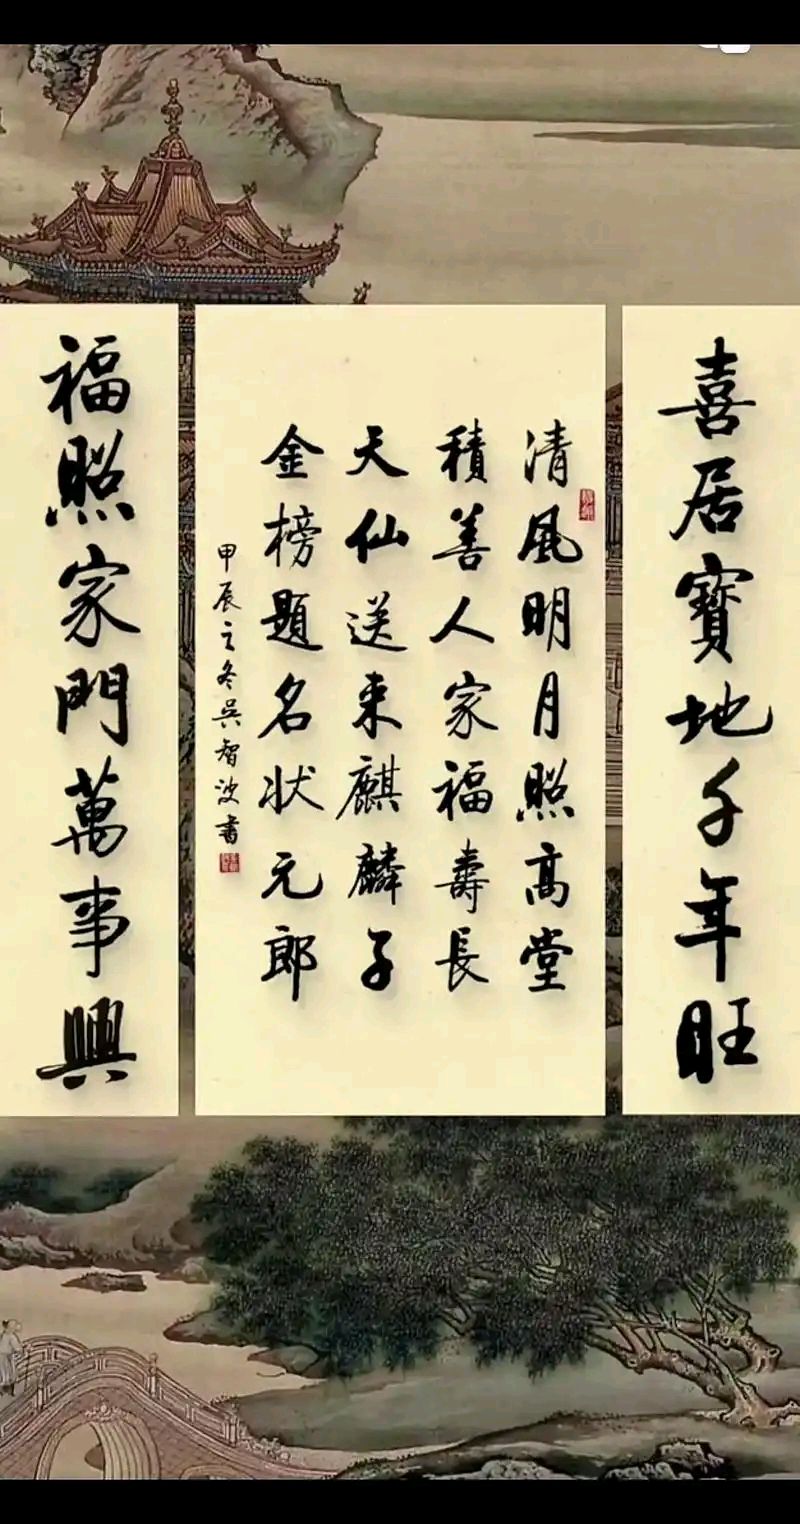 喜居寶地千年旺
清風明月照高堂
積善人家福壽長
天仙送来麒麟子
金榜題名状元郎
甲辰之冬吳智波書
福照家門萬事興